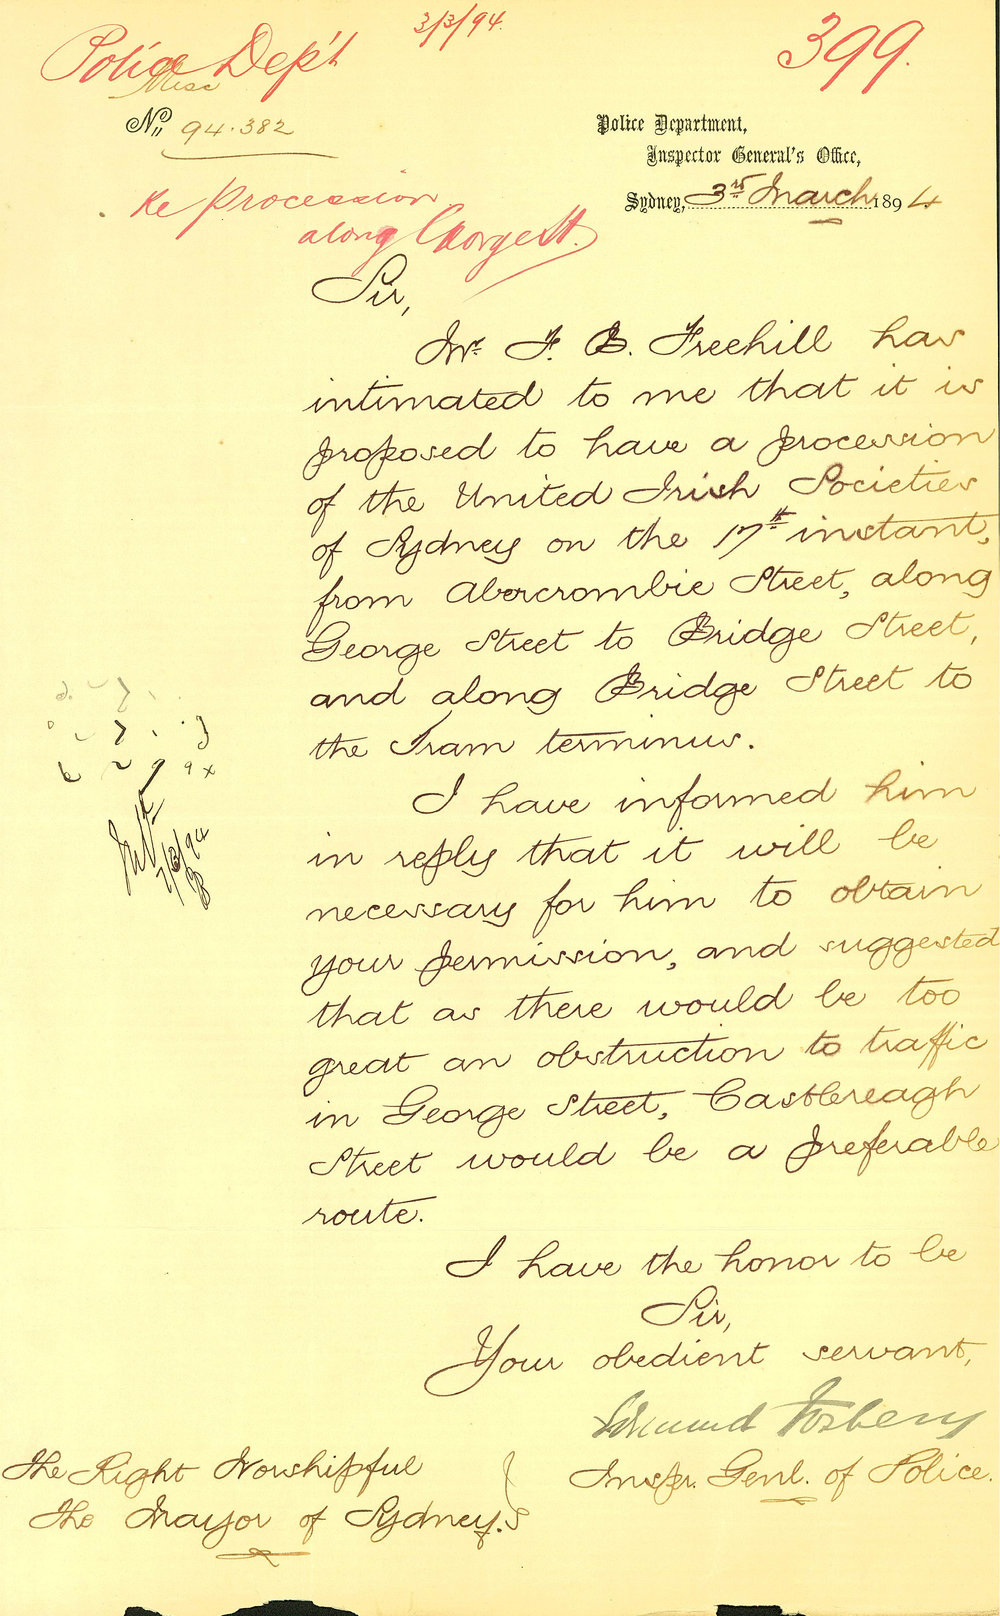 Police Dep't
3/3/94.
399.
Misc
No. 94.382
Police Department,
Inspector General's Office,
Sydney, 3rd March 1894
Re Procession
along George St.
Sir,
Mr. F. B. Freehill has
intimated to me that it is
proposed to have a procession
of the United Irish Societies
of Sydney on the 17th instant,
from Abercrombie Street, along
George Street to Bridge Street,
and along Bridge Street to
the Tram terminus.
I have informed him
in reply that it will be
necessary for him to obtain
your permission, and suggested
that as there would be too
great an obstruction to traffic
in George Street, Castlereagh
Street would be a preferable
route.
I have the honor to be
Sir,
Your obedient servant,
Edmund Fosbery
Inspr. Genl. of Police.
The Right Worshipful
The Mayor of Sydney.